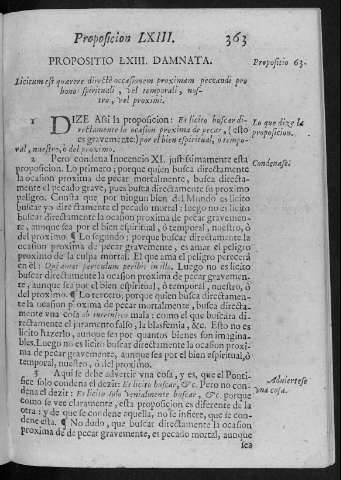 Proposicion LXIII. 363
PROPOSITIO LXIII. DAMNATA.
Propositio 63.
Licitum est quærere directè occasionem proximam peccandi pro
bono spirituali, vel temporali, nos-
tro, vel proximi.
1 DIZE Assi la proposicion: Es licito buscar di-
rectamente la ocasion proxima de pecar, (esto
es gravemente) por el bien espiritual, ò tempo-
ral, nuestro, ò del proximo.
Lo que dize la
proposicion.
2 Pero condena Inocencio XI. justissimamente esta
Condenase.
proposicion. Lo primero; porque quien busca directamente
la ocasion proxima de pecar mortalmente, busca directa-
mente el pecado grave, pues busca directamente su proximo
peligro. Consta que por ningun bien del Mundo es licito
buscar yo directamente el pecado mortal: luego no es licito
buscar directamente la ocasion proxima de pecar gravemen-
te, aunque sea por el bien espiritual, ò temporal, nuestro, ò
del proximo. ¶ Lo segundo; porque buscar directamente la
ocasion proxima de pecar gravemente, es amar el peligro
proximo de la culpa mortal. El que ama el peligro perecerà
en èl: Qui amat periculum peribit in illo. Luego no es licito
buscar directamente la ocasion proxima de pecar gravemen-
te, aunque sea por el bien espiritual, ò temporal, nuestro, ò
del proximo. ¶ Lo tercero, porque quien busca directamen-
te la ocasion proxima de pecar mortalmente, busca directa-
mente vna cosa ab intrinseco mala: como el que buscara di-
rectamente el juramento falso, la blasfemia, &c. Esto no es
licito hazerlo, aunque sea por quantos bienes son imagina-
bles. Luego no es licito buscar directamente la ocasion proxi-
ma de pecar gravemente, aunque sea por el bien espiritual, ò
temporal, nuestro, ò del proximo.
3 Aqui se debe advertir vna cosa, y es, que el Ponti-
fice solo condena el dezir: Es licito buscar, &c. Pero no con-
Adviertese
vna cosa.
dena el dezir: Es licito solo venialmente buscar, &c. porque
como se vee claramente, esta proposicion es diferente de la
otra: y de que se condene aquella, no se infiere, que se con-
dene esta. ¶ No dudo, que buscar directamente la ocasion
proxima de de pecar gravemente, es pecado mortal, aunque
sea